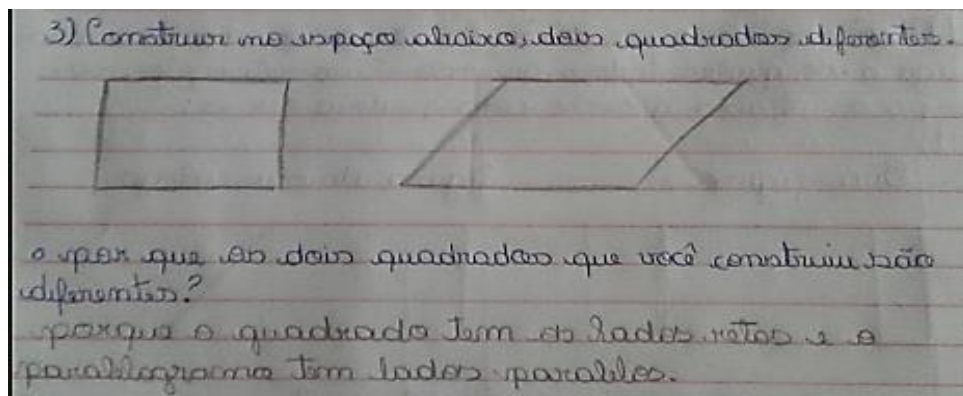 3) Construir no espaço abaixo, dois quadrados diferentes.
o por que os dois quadrados que você construiu são
diferentes?
porque o quadrado tem os lados retos e o
paralelograma tem lados paralelos.